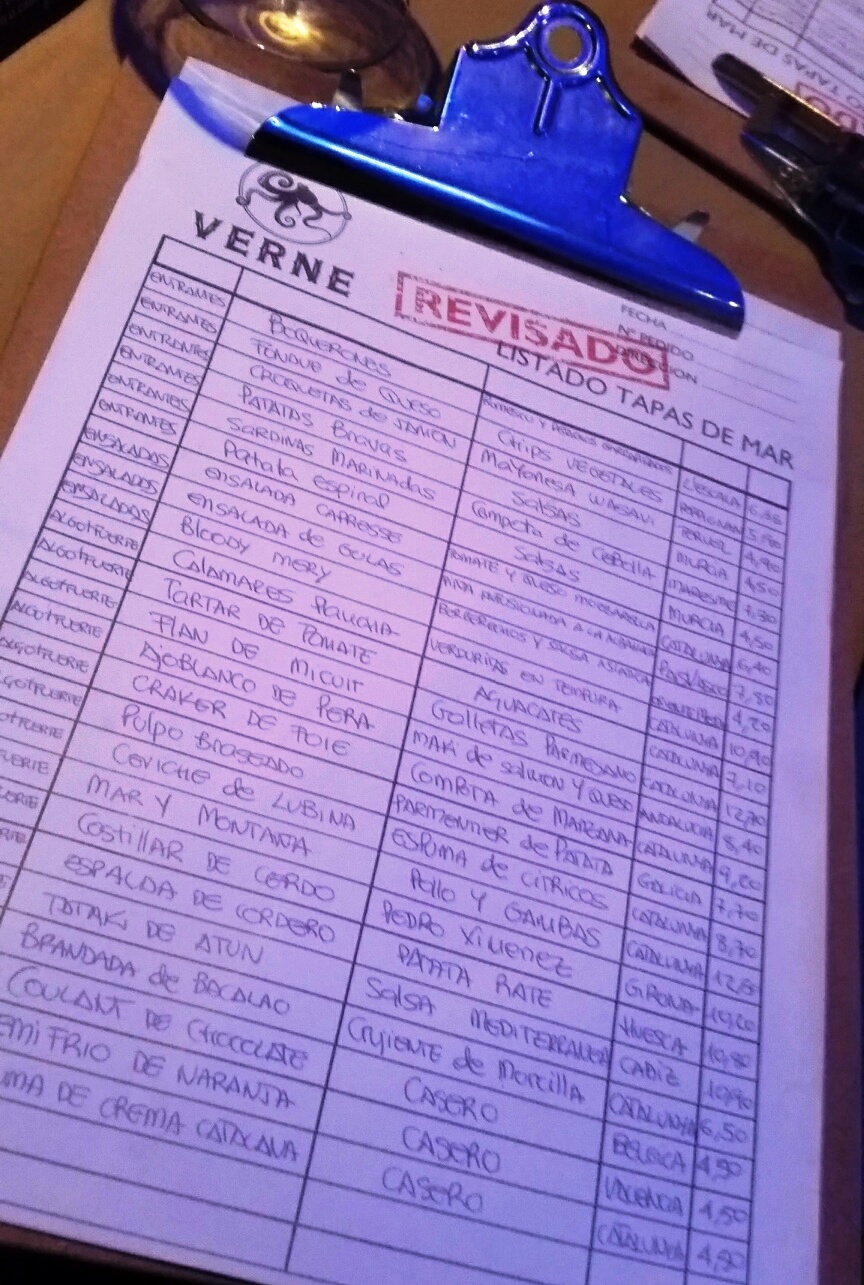 VERNE
REVISADO
FECHA
Nº PEDIDO
LISTADO TAPAS DE MAR
ENTRANTES BOQUERONES ROMESCU Y L'ESCALA
ENTRANTES FONDUE de QUESO Chips VEGETALES PERPIGNAN 5,90
ENTRANTES CROQUETAS de JAMON MAYONESA WASAVI TERUEL 4,90
ENTRANTES PATATAS Bravas SALSAS MURCIA 4,50
ENTRANTES SARDINAS MARINADAS Compota de Cebolla MARESME 7,30
ENTRANTES Patata espiral SALSAS MURCIA 4,50
ENSALADAS ENSALADA CAPRESSE TOMATE Y QUESO MOZZARELLA CATALUNYA 6,40
ENSALADAS ENSALADA de GULAS A LA 7,80
ENSALADAS Bloody MERY BERBERECHOS Y SALSA ASIATICA 4,20
ALGO FUERTE Calamares Plancha VERDURITAS EN TEMPURA CATALUNYA 10,90
ALGO FUERTE TARTAR DE TOMATE AGUACATES CATALUNYA 7,10
ALGO FUERTE FLAN DE MICUIT Galletas PARMESANO CATALUNYA 12,70
ALGO FUERTE AJOBLANCO DE PERA MAKI de SALMON Y QUESO ANDALUCIA 8,40
ALGO FUERTE CRAKER DE FOIE COMPOTA de MANZANA CATALUNYA 9,20
FUERTE Pulpo BRASEADO PARMENTIER de PATATA GALICIA 7,70
FUERTE CEVICHE de LUBINA ESPUMA de CITRICOS CATALUNYA 8,70
MAR Y MONTAÑA Pollo Y GAMBAS CATALUNYA
Costillar DE CERDO PEDRO XIMENEZ GIRONA 10,20
ESPALDA DE CORDERO PATATA RATE HUESCA 10,80
TATAKI DE ATUN SALSA MEDITERRANEA CADIZ 10,90
BRANDADA de BACALAO Crujiente de Morcilla CATALUNYA 6,50
COULANT DE CHOCOLATE CASERO BELGICA 4,50
EMIFRIO DE NARANJA CASERO VALENCIA 4,50
UMA DE CREMA CATALANA CASERO CATALUNYA 4,90
TAPAS DE MAR